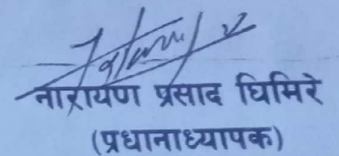 नारायण प्रसाद घिमिरे
(प्रधानाध्यापक)